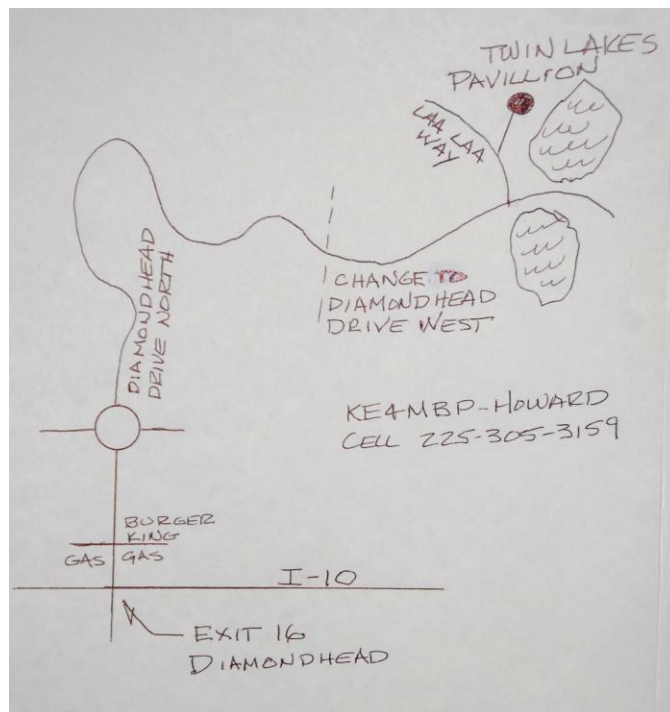 TWIN LAKES
PAVILLION
LAA LAA
WAY
DIAMONDHEAD
DRIVE NORTH
CHANGE TO
DIAMONDHEAD
DRIVE WEST
KE4MBP-HOWARD
CELL 225-305-3159
BURGER
KING
GAS GAS
I-10
EXIT 16
DIAMONDHEAD